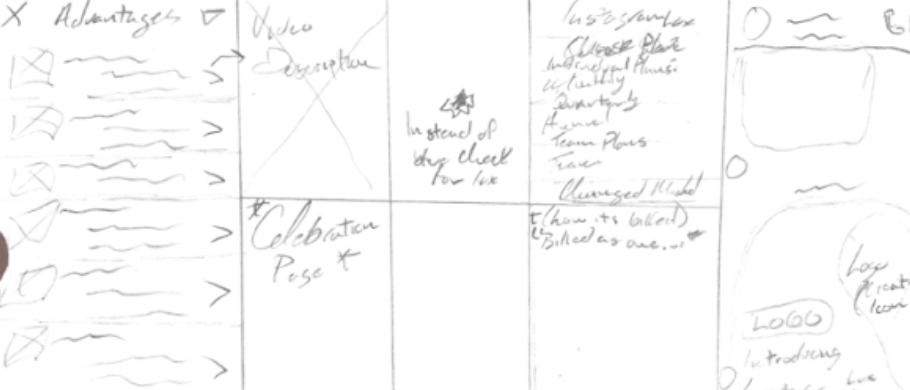 X Advantages
Video
Description
* Celebration
Page *
Instead of
blue check
for lux
Instagram lux
Choose Plan
Individual Plans:
Quarterly
Annual
Team Plans
(how its billed)
Billed as one...*
Logo
Icon
LOGO
Introducing
lux